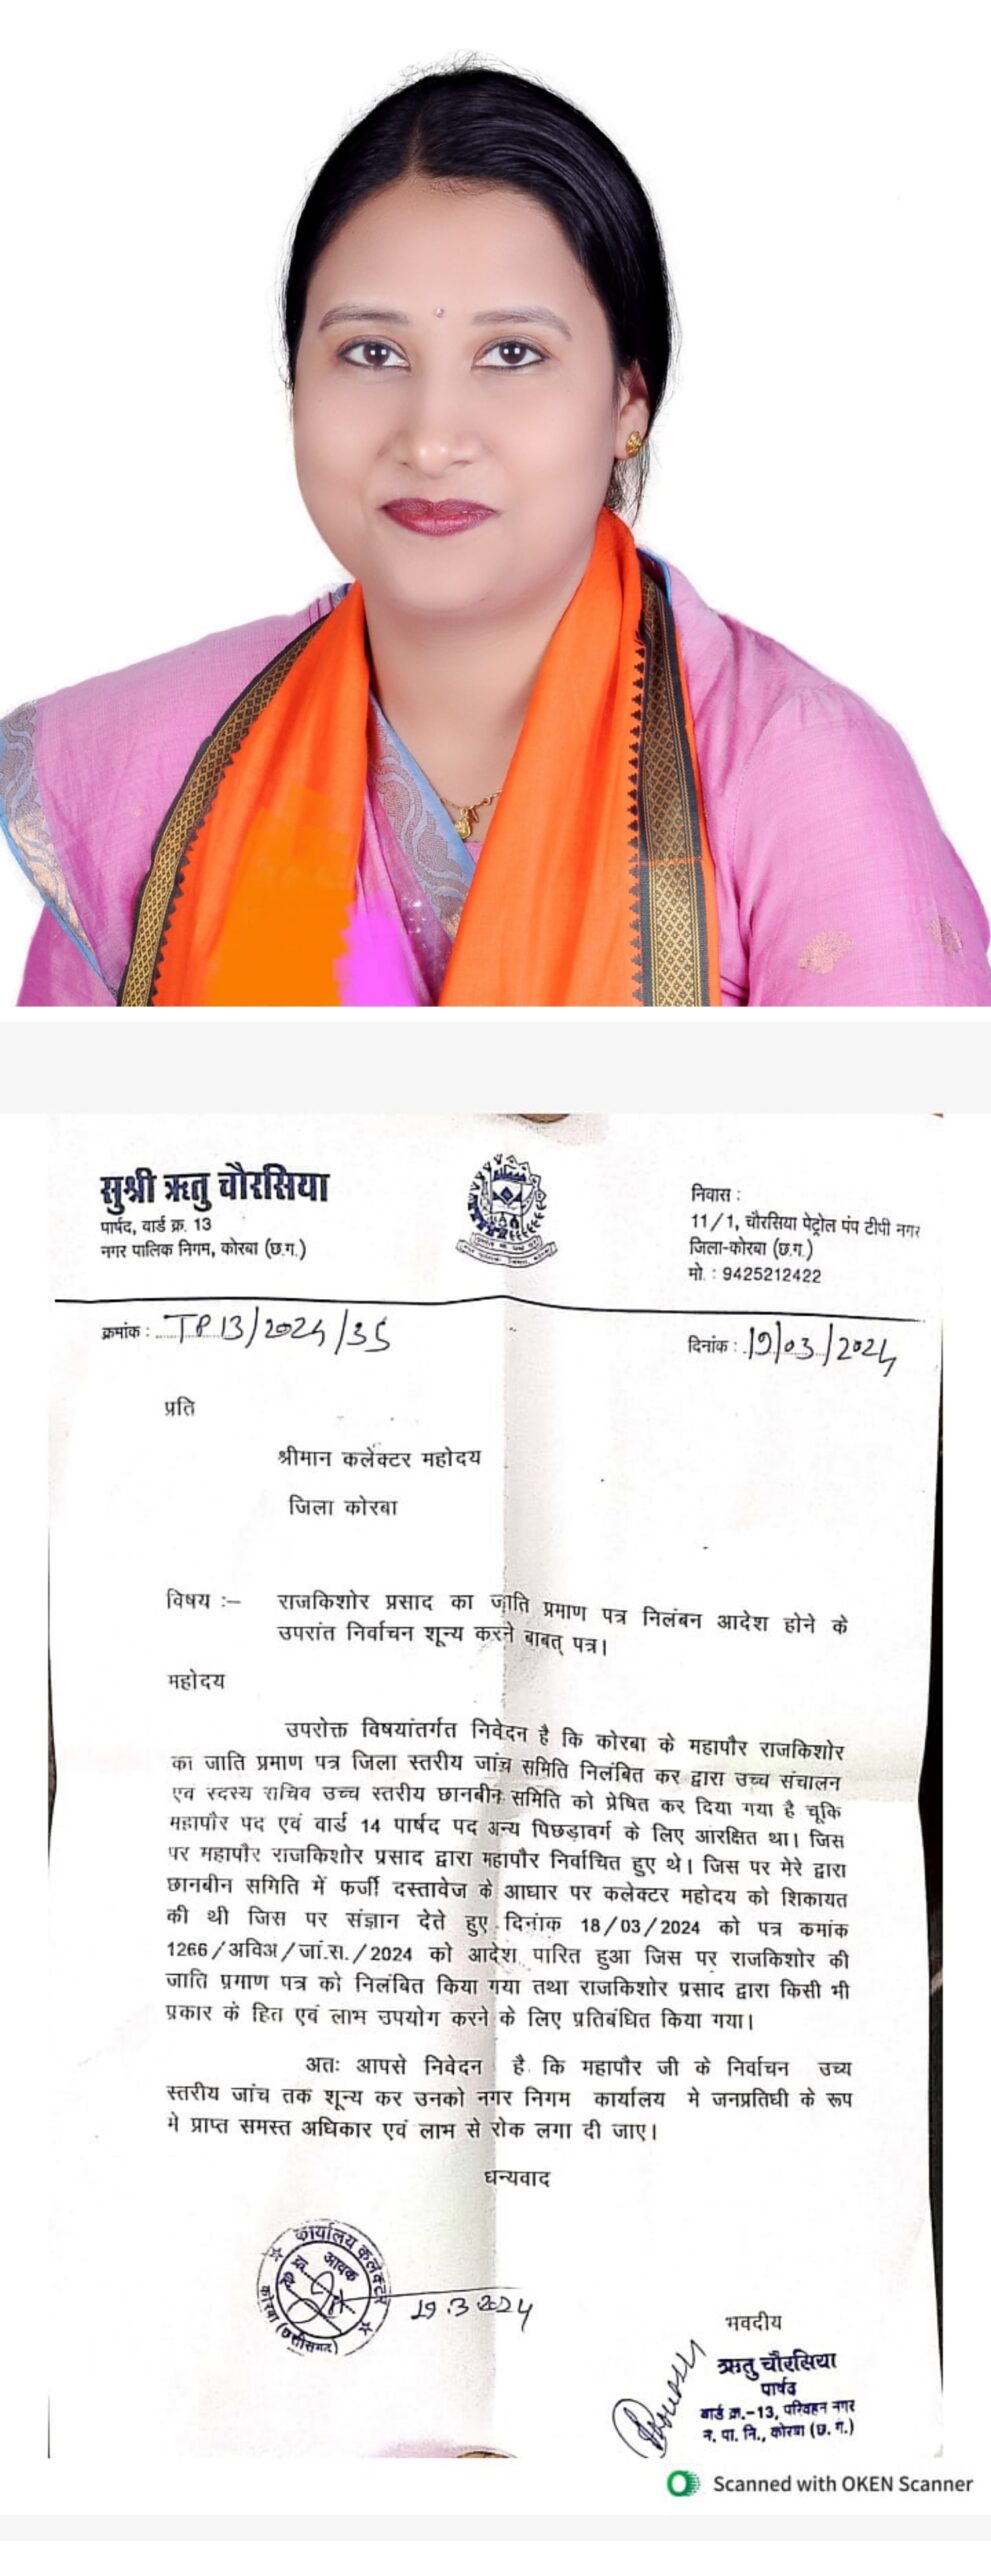 सुश्री ऋतु चौरसिया
पार्षद, वार्ड क्र. 13
नगर पालिक निगम, कोरबा (छ.ग.)
निवास :
11/1, चौरसिया पेट्रोल पंप टीपी नगर
जिला-कोरबा (छ.ग.)
मो. : 9425212422
क्रमांक : TP 13/2024/35
दिनांक : 19/03/2024
प्रति
श्रीमान कलेक्टर महोदय
जिला कोरबा
विषय :– राजकिशोर प्रसाद का जाति प्रमाण पत्र निलंबन आदेश होने के
उपरांत निर्वाचन शून्य करने बाबत् पत्र।
महोदय
उपरोक्त विषयांतर्गत निवेदन है कि कोरबा के महापौर राजकिशोर
का जाति प्रमाण पत्र जिला स्तरीय जांच समिति निलंबित कर द्वारा उच्च संचालन
एवं सदस्य सचिव उच्च स्तरीय छानबीन समिति को प्रेषित कर दिया गया है चूकि
महापौर पद एवं वार्ड 14 पार्षद पद अन्य पिछड़ावर्ग के लिए आरक्षित था। जिस
पर महापौर राजकिशोर प्रसाद द्वारा महापौर निर्वाचित हुए थे। जिस पर मेरे द्वारा
छानबीन समिति में फर्जी दस्तावेज के आधार पर कलेक्टर महोदय को शिकायत
की थी जिस पर संज्ञान देते हुए दिनांक 18/03/2024 को पत्र कमांक
1266/अविअ/जां.स./2024 को आदेश पारित हुआ जिस पर राजकिशोर की
जाति प्रमाण पत्र को निलंबित किया गया तथा राजकिशोर प्रसाद द्वारा किसी भी
प्रकार के हित एवं लाभ उपयोग करने के लिए प्रतिबंधित किया गया।
अतः आपसे निवेदन है कि महापौर जी के निर्वाचन उच्य
स्तरीय जांच तक शून्य कर उनको नगर निगम कार्यालय मे जनप्रतिघी के रूप
मे प्राप्त समस्त अधिकार एवं लाभ से रोक लगा दी जाए।
धन्यवाद
कार्यालय कलेक्टर
आवक
कोरबा (छत्तीसगढ़)
19.3.2024
भवदीय
ऋतु चौरसिया
पार्षद
वार्ड क्र.-13, परिवहन नगर
न. पा. नि., कोरबा (छ. ग.)
Scanned with OKEN Scanner